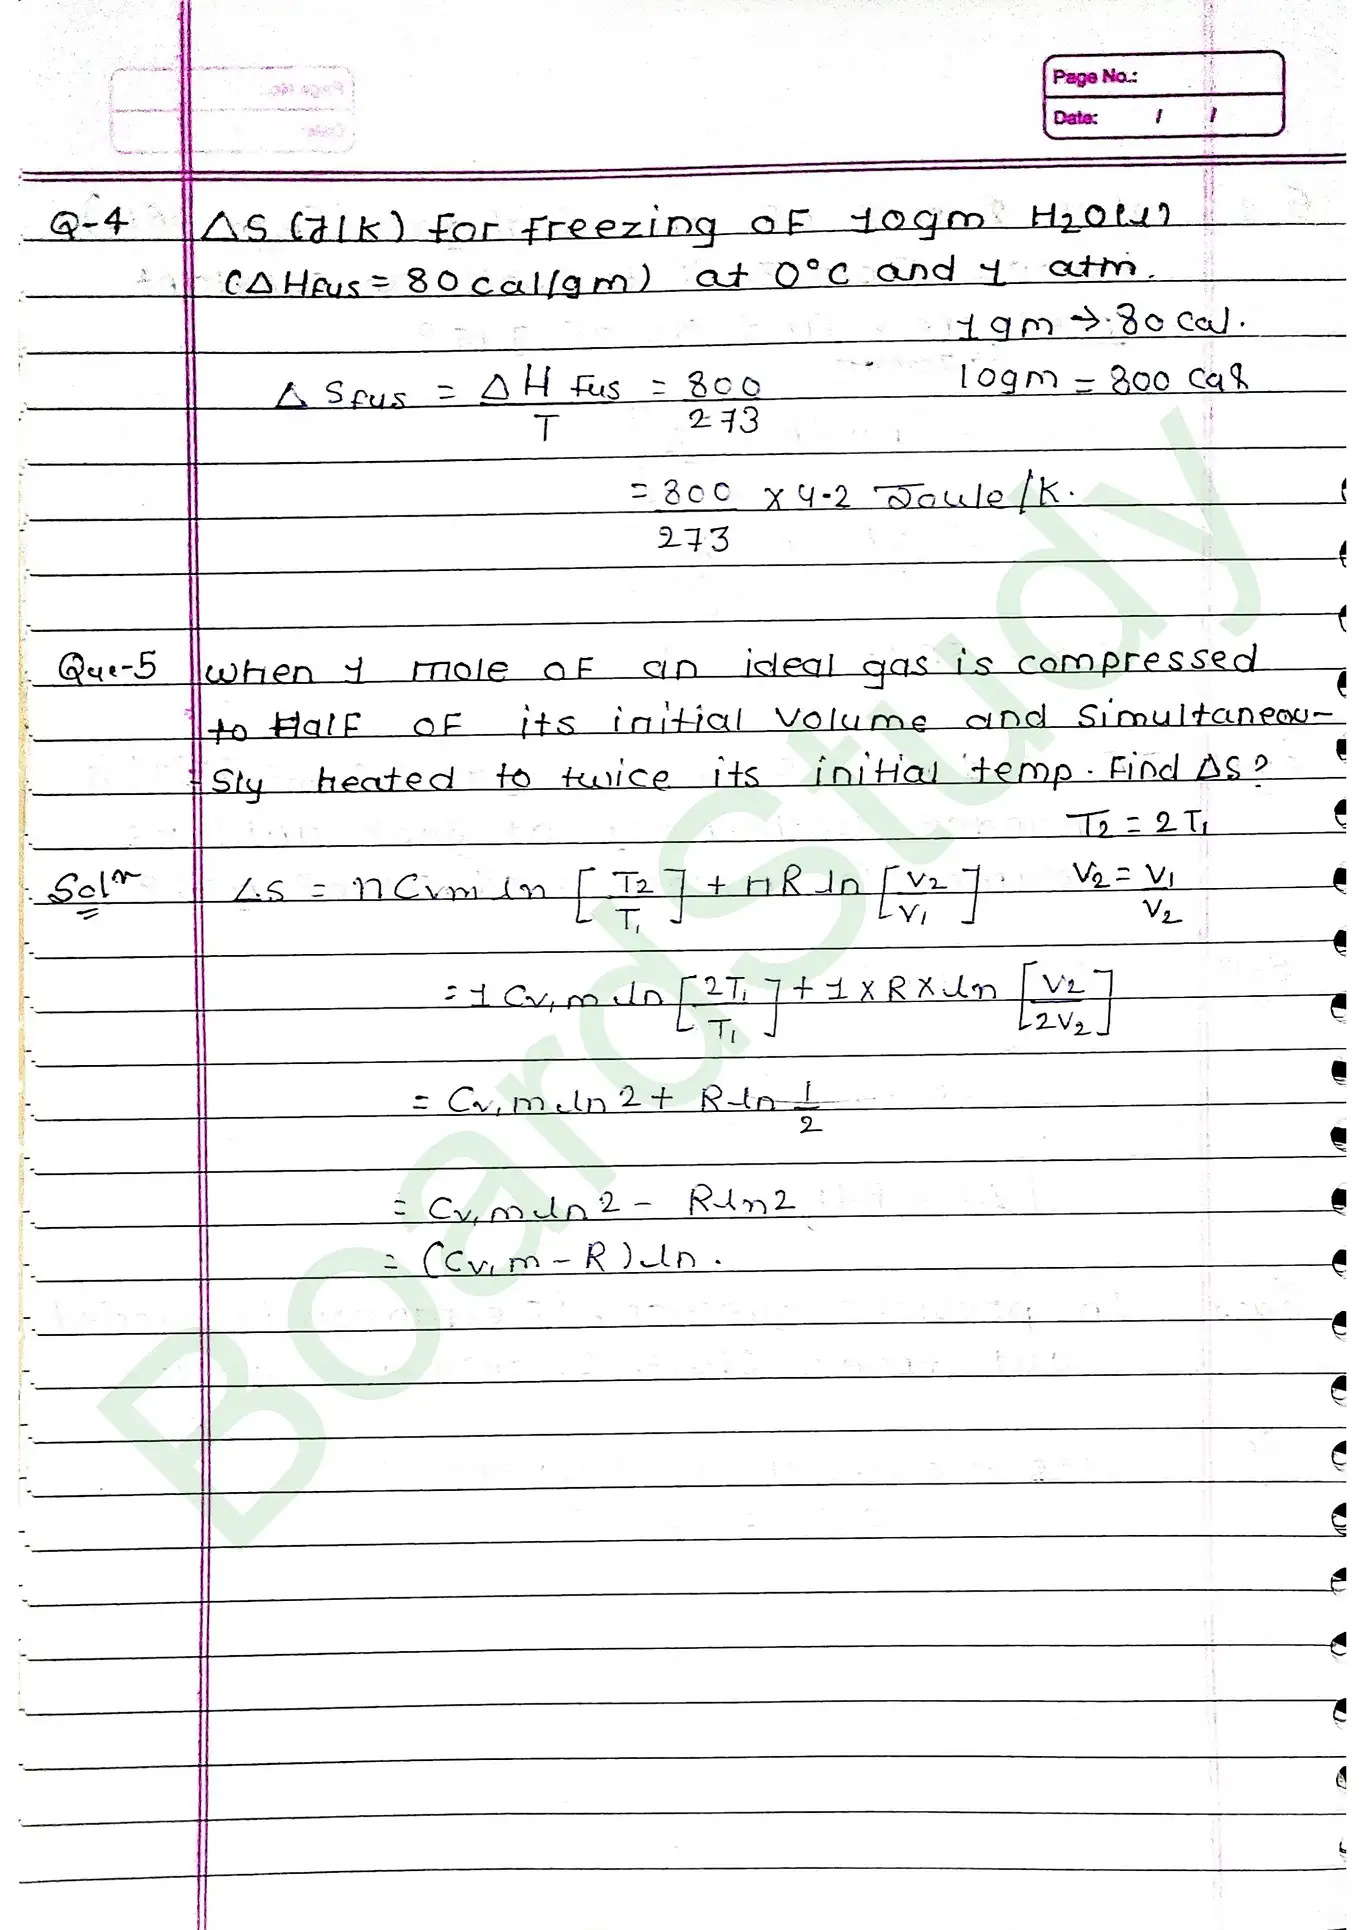 Page No.:
Date: / /
Q-4 ΔS (J/K) for freezing of 10gm H2O(l)
(ΔHfus = 80 cal/gm) at 0°C and 1 atm.
1 gm → 80 cal.
10gm = 800 cal
ΔSfus = ΔH fus / T = 800 / 273
= 800 / 273 × 4.2 Joule/K.
Que-5 When 1 mole of an ideal gas is compressed
to Half of its initial volume and simultaneou-
-sly heated to twice its initial temp. Find ΔS?
T2 = 2T1
Solⁿ ΔS = nCvm ln [T2 / T1] + nR ln [V2 / V1]. V2 = V1 / V2
= 1 Cv,m ln [2T1 / T1] + 1 × R × ln [V2 / 2V2]
= Cv,m ln 2 + R ln 1/2
= Cv,m ln 2 - R ln 2
= (Cv,m - R) ln.
BoardStudy